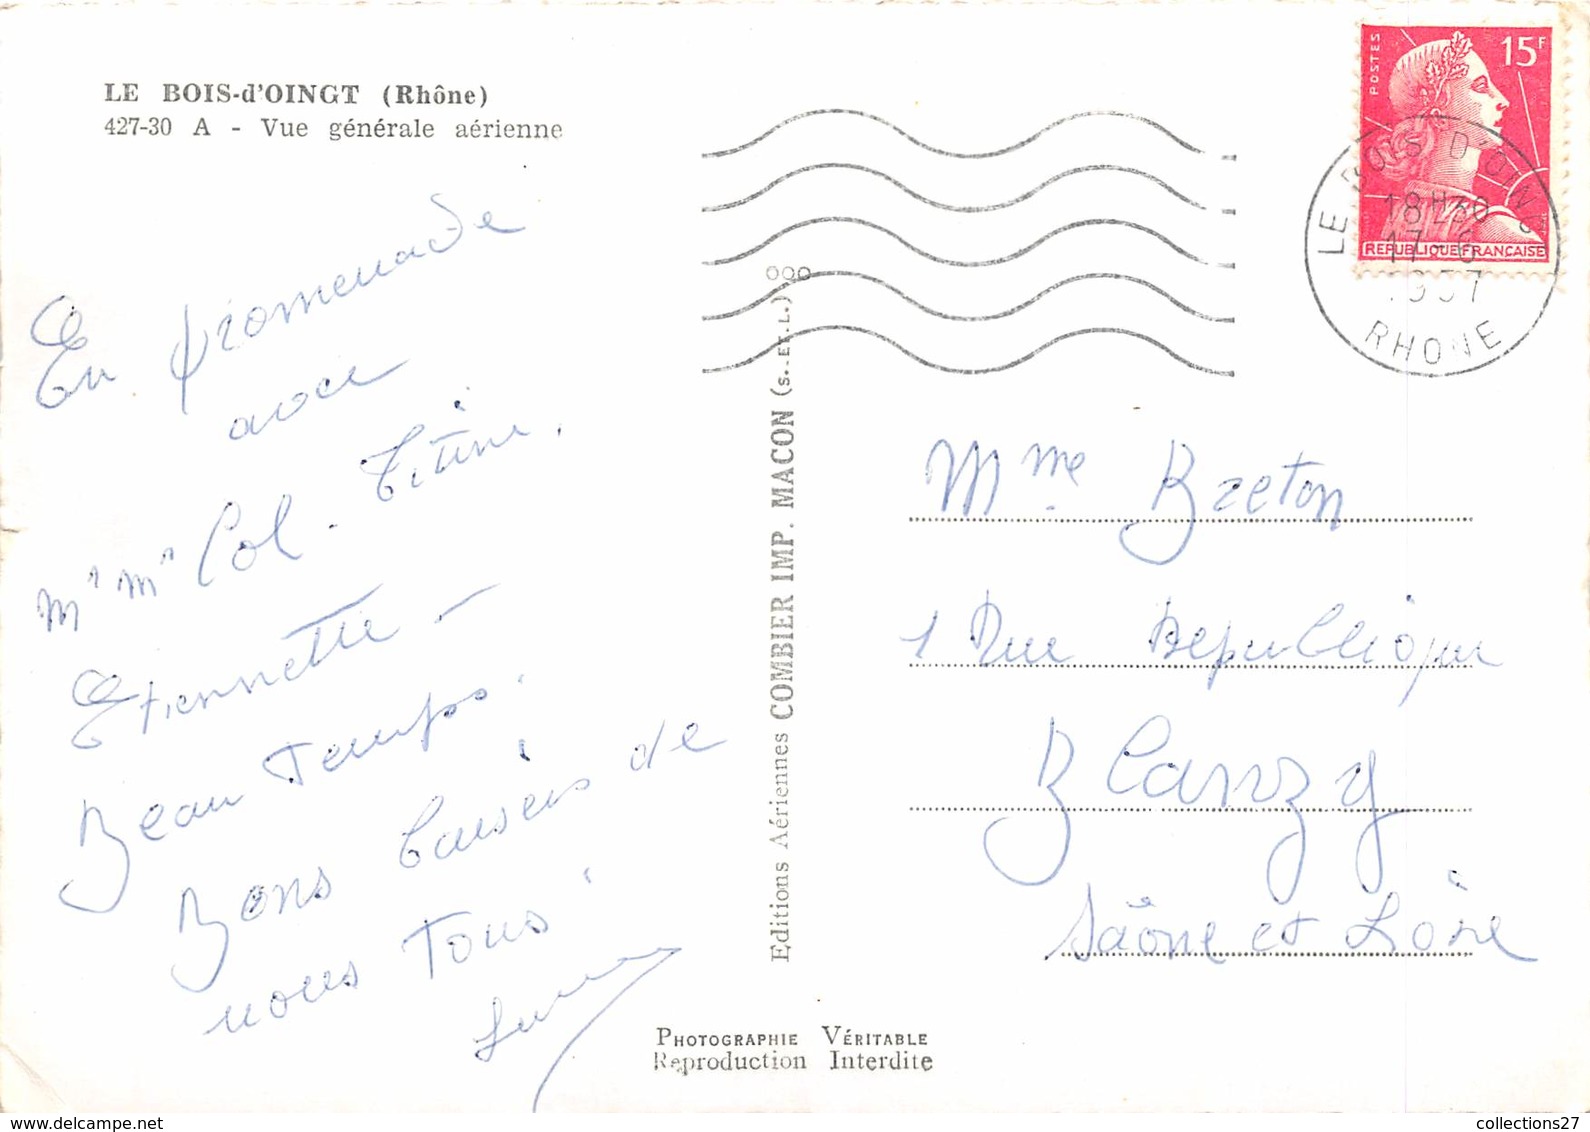 LE BOIS-d'OINGT (Rhône)
427-30 A - Vue générale aérienne
En promenade
avec
Mr Mr Col - Titine.
Etiennette -
Beau Temps.
Bons baisers de
nous Tous
Editions Aériennes COMBIER IMP. MACON (S. ET. L.) 000
POSTES
15F
REPUBLIQUE FRANÇAISE
LE BOIS D'OINGT
18H30
1957
RHONE
Mme Breton
1 Rue République
Blanzy
Saône et Loire
PHOTOGRAPHIE VÉRITABLE
Reproduction Interdite
collections27